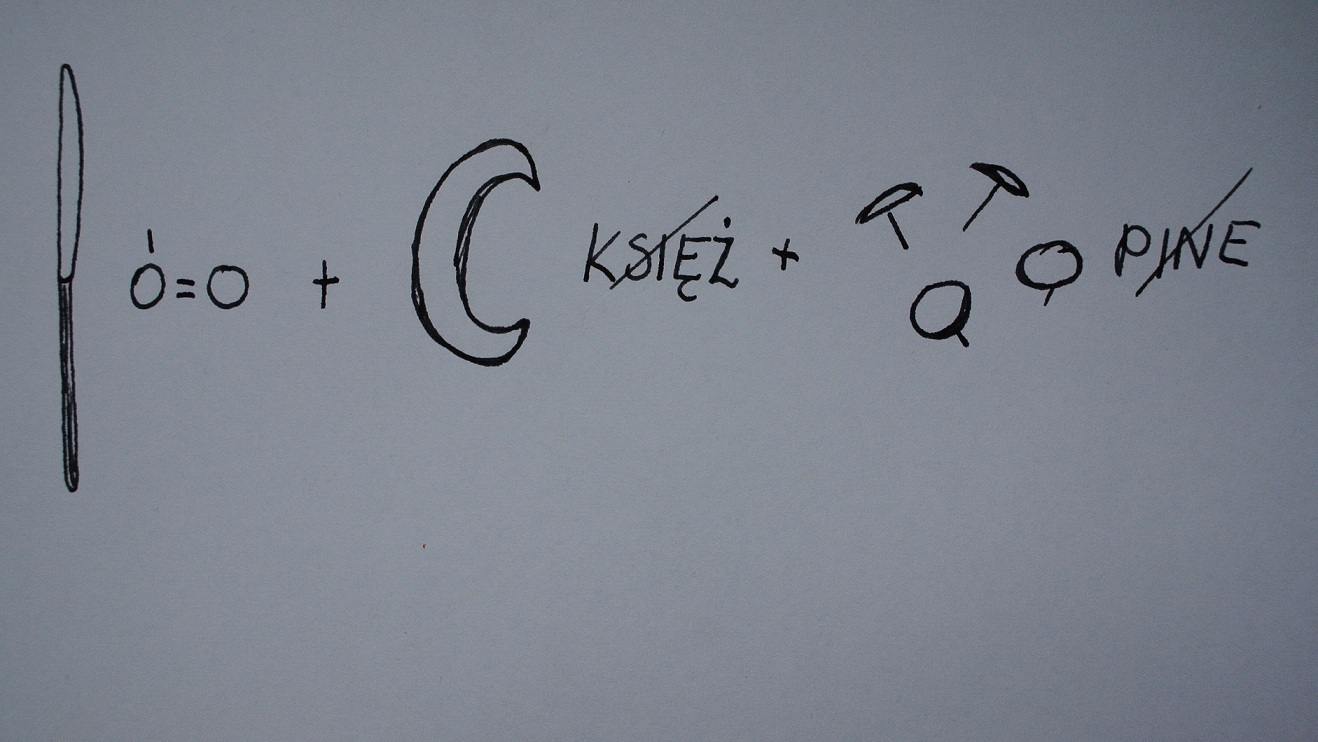 Ó=O + KSIĘŻ + PINE